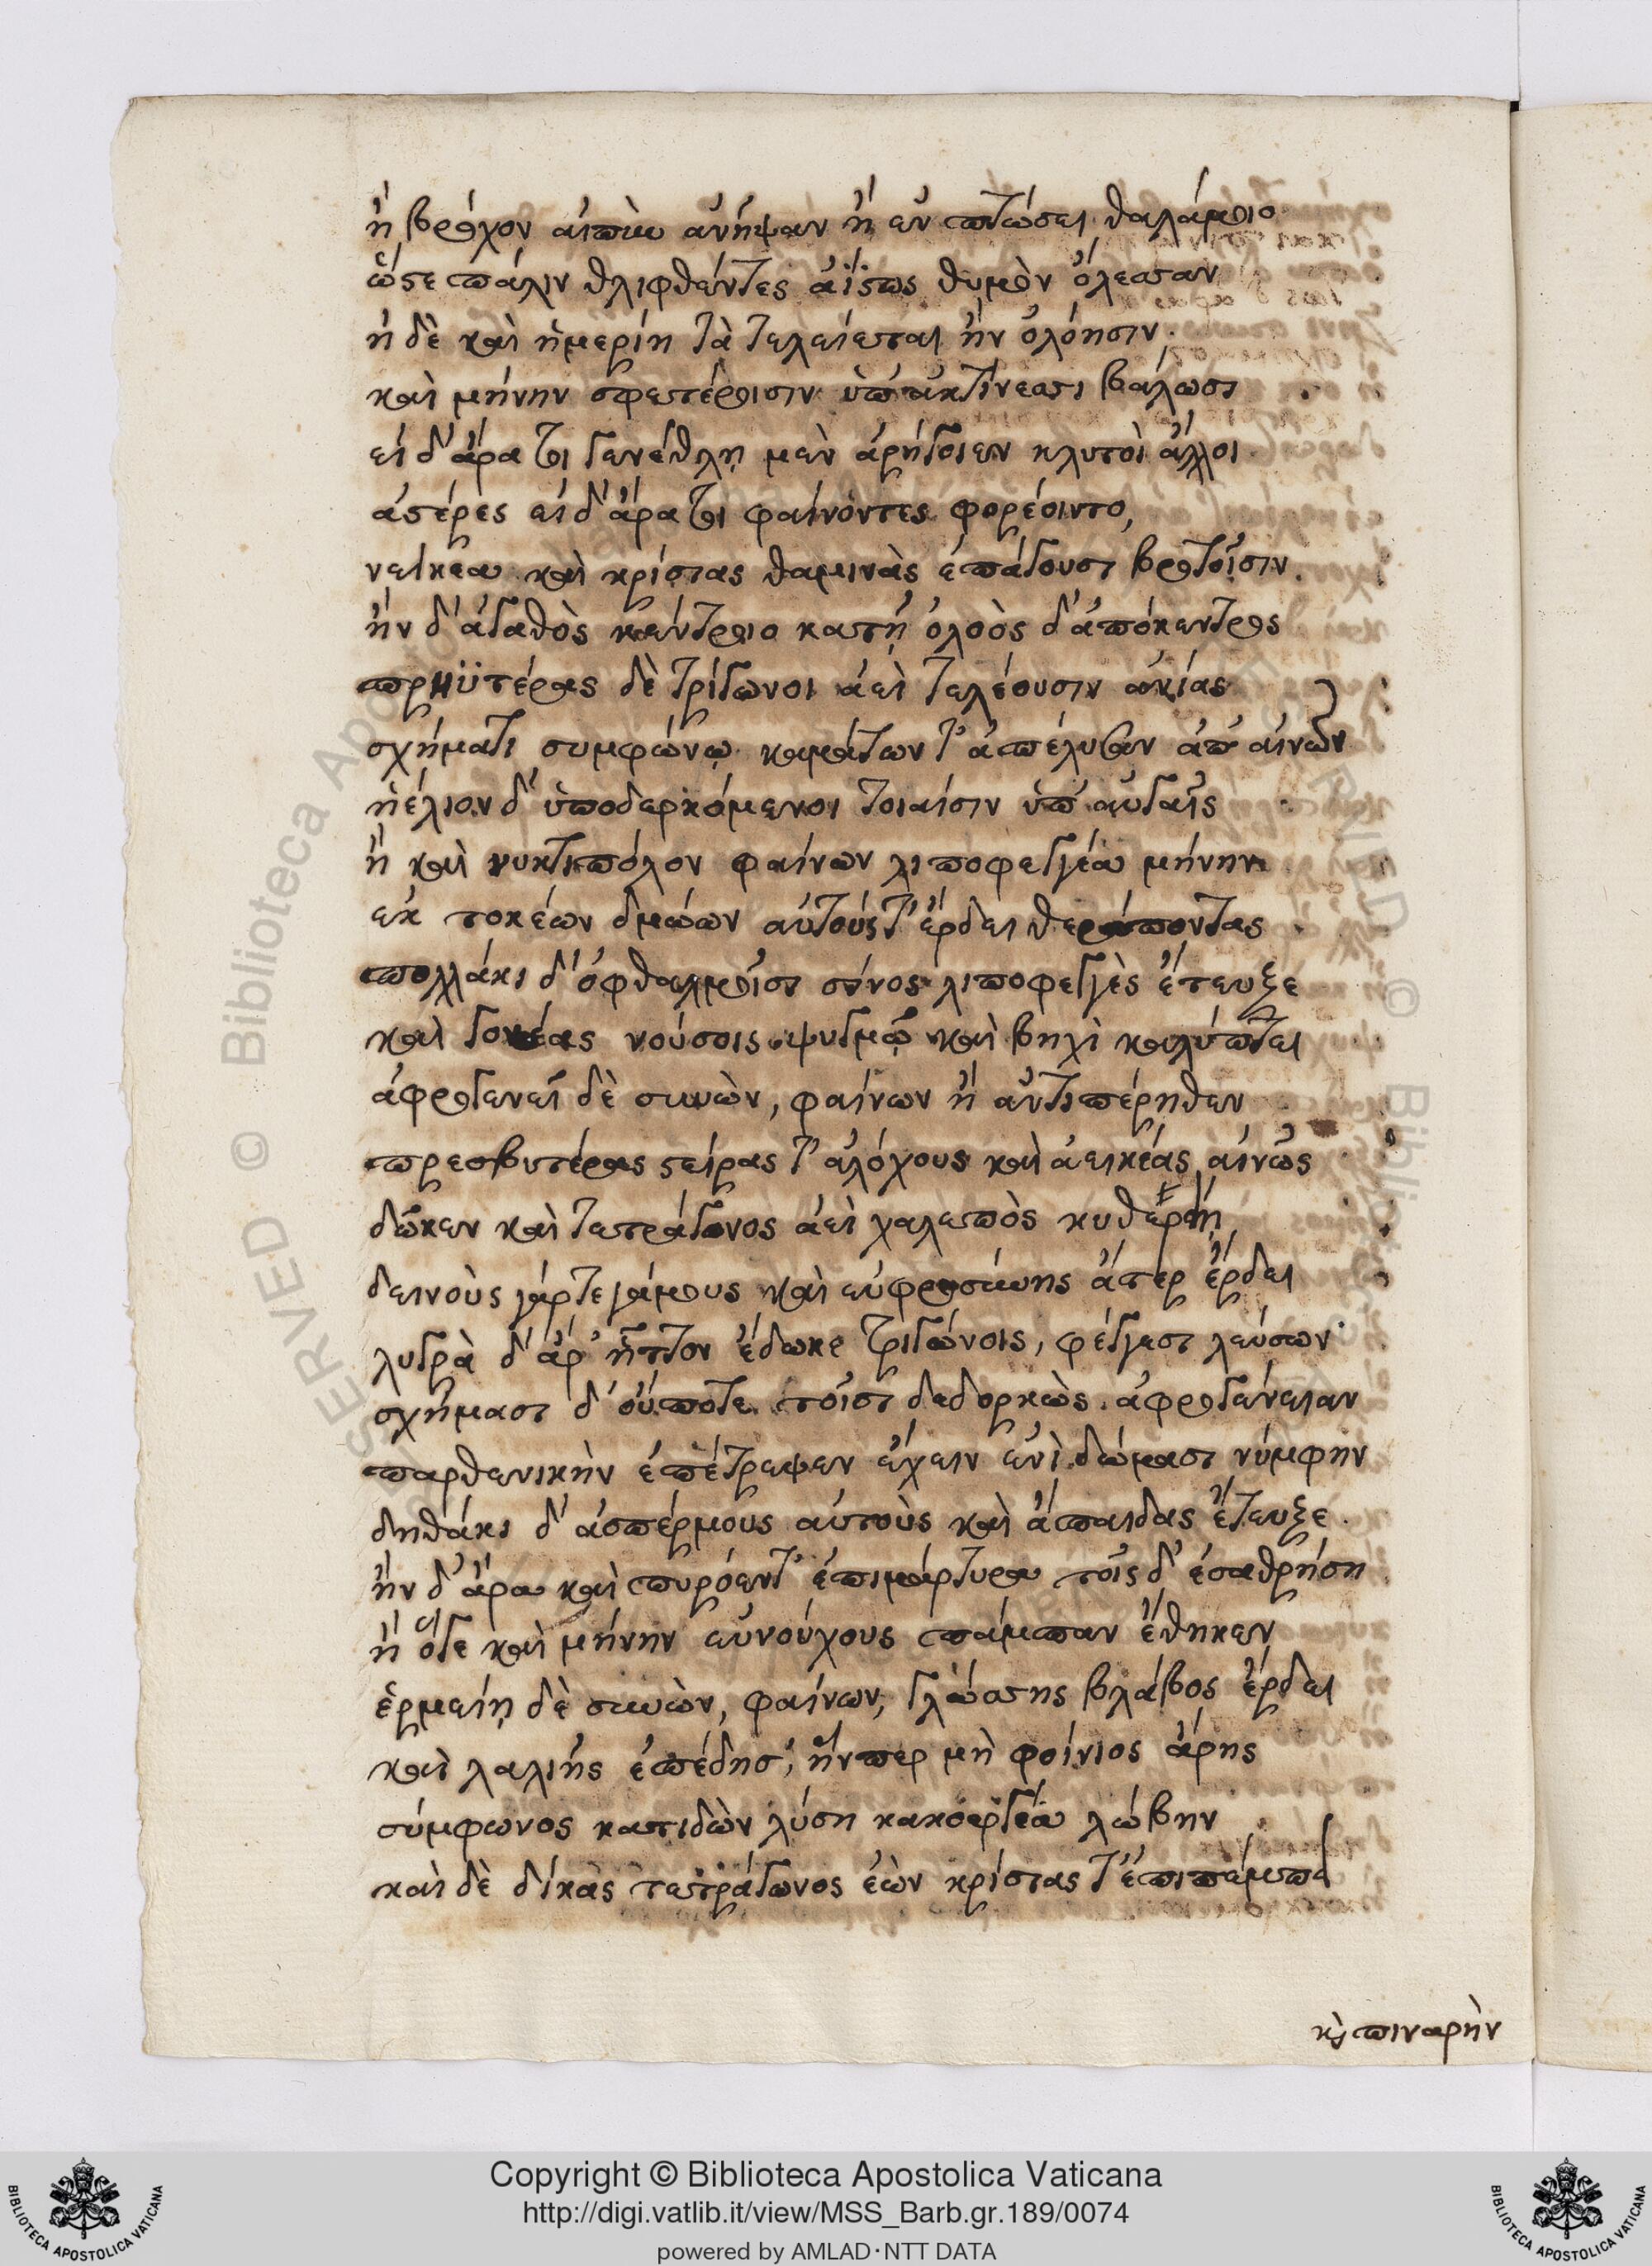 ἢ βρόχον αἰπὺν ἀνῆψαν ἢ ἐν πτώσει θαλάμοιο
ὥστε πάλιν θλιφθέντες ἀΐστως θυμὸν ὄλεσαν
ἠ δὲ καὶ ἡμερίη τὰ τελείεται ἢν ὀλόησιν.
καὶ μήνην σφετέροισιν ὑπ' ἀκτίνεσσι βάλωσι
εἰ δ' ἄρα οἱ γενέθλῃ μὲν ἀρήγοιεν κλυτοὶ ἄλλοι
ἀστέρες εἰ δ' ἄρα οἱ φαίνοντες φορέοιντο,
νείκεα καὶ κρίσιας θαμινὰς ἐπάγουσι βροτοῖσιν.
ἢν δ' ἀγαθὸς κέντροιο κατῇ ὀλοὸς δ' ἀπόκεντρος
πρηϋτέρας δὲ τρίγωνοι ἀεὶ τελέουσιν ἀνίας
σχήματι συμφώνῳ καμάτων τ' ἀπέλυσαν ἀπ' αἰνῶν
ἠέλιον δ' ὑποδερκόμενοι τοιαίσιν ὑπ' αὐγαῖς
ἢ καὶ νυκτιπόλον φαίνων λιποφεγγέα μήνην
ἐκ τοκέων δμώων αὐτούς τ' ἔρδει θεράποντας
πολλάκι δ' ὀφθαλμοῖσι σίνος λιποφεγγὲς ἔτευξε
καὶ γονέας νούσοις ψυγμῷ καὶ βηχὶ καλύπτει
ἀφρογενεῖ δὲ συνὼν, φαίνων ἢ ἀντιπέρηθεν
πρεσβυτέρας στείρας τ' ἀλόχους καὶ ἀεικέας αἰνῶς
δῶκεν καὶ τετράγωνος ἀεὶ χαλεπὸς κυθέρῃ
δεινοὺς γάρτε γάμους καὶ εὐφροσύνης ἄτερ ἔρδει
λυγρὰ δ' ἄρ' ἧττον ἔδωκε τριγώνοις, φέγγεσι λεύσων
σχήμασι δ' οὔποτε τοῖσι δεδορκὼς ἀφρογένειαν
παρθενικὴν ἐπέτρεψεν ἔχειν ἐνὶ δώμασι νύμφην
δηθάκι δ' ἀσπέρμους αὐτοὺς καὶ ἄπαιδας ἔτευξε.
ἢν δ' ἄρα καὶ πυρόεντ' ἐπιμάρτυρα τοῖς δ' ἐσαθρήση
ἢ ὅγε καὶ μήνην εὐνούχους πάμπαν ἔθηκεν
ἑρμείῃ δὲ συνὼν, φαίνων, γλώσσης βλάβος ἔρδει
καὶ λαλιῆς ἐπέδησ', ἤνπερ μὴ φοίνιος ἄρης
σύμφωνος κατιδὼν λύση κακοεργέα λώβην
καὶ δὲ δίκας τετράγωνος ἐὼν κρίσιας τ' ἐπιπέμπει
κὶ πιναρὴν
Copyright © Biblioteca Apostolica Vaticana
http://digi.vatlib.it/view/MSS_Barb.gr.189/0074
powered by AMLAD·NTT DATA